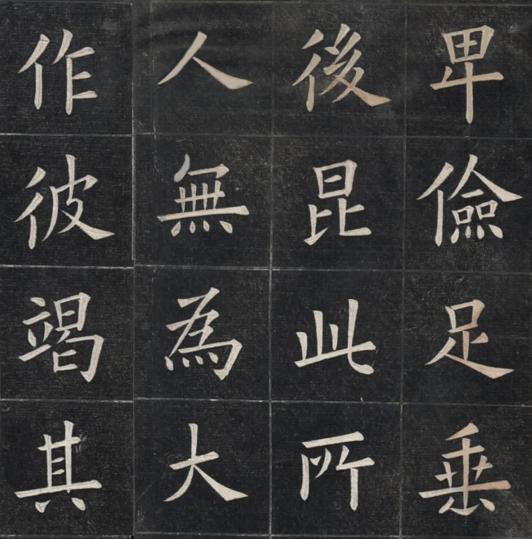 卑儉足垂
後昆此所
人無為大
作彼竭其